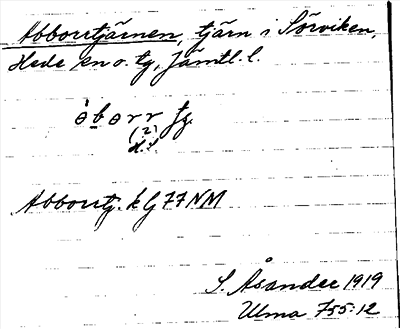 Abborrtjärnen, tjärn i Sörviken,
Hede sn o. tg, Jämtl. l.
å b o r r tj.
(?)
d.s.
Abborrtj. k G 77 NM
S. Åsander 1919
Ulma 755:12